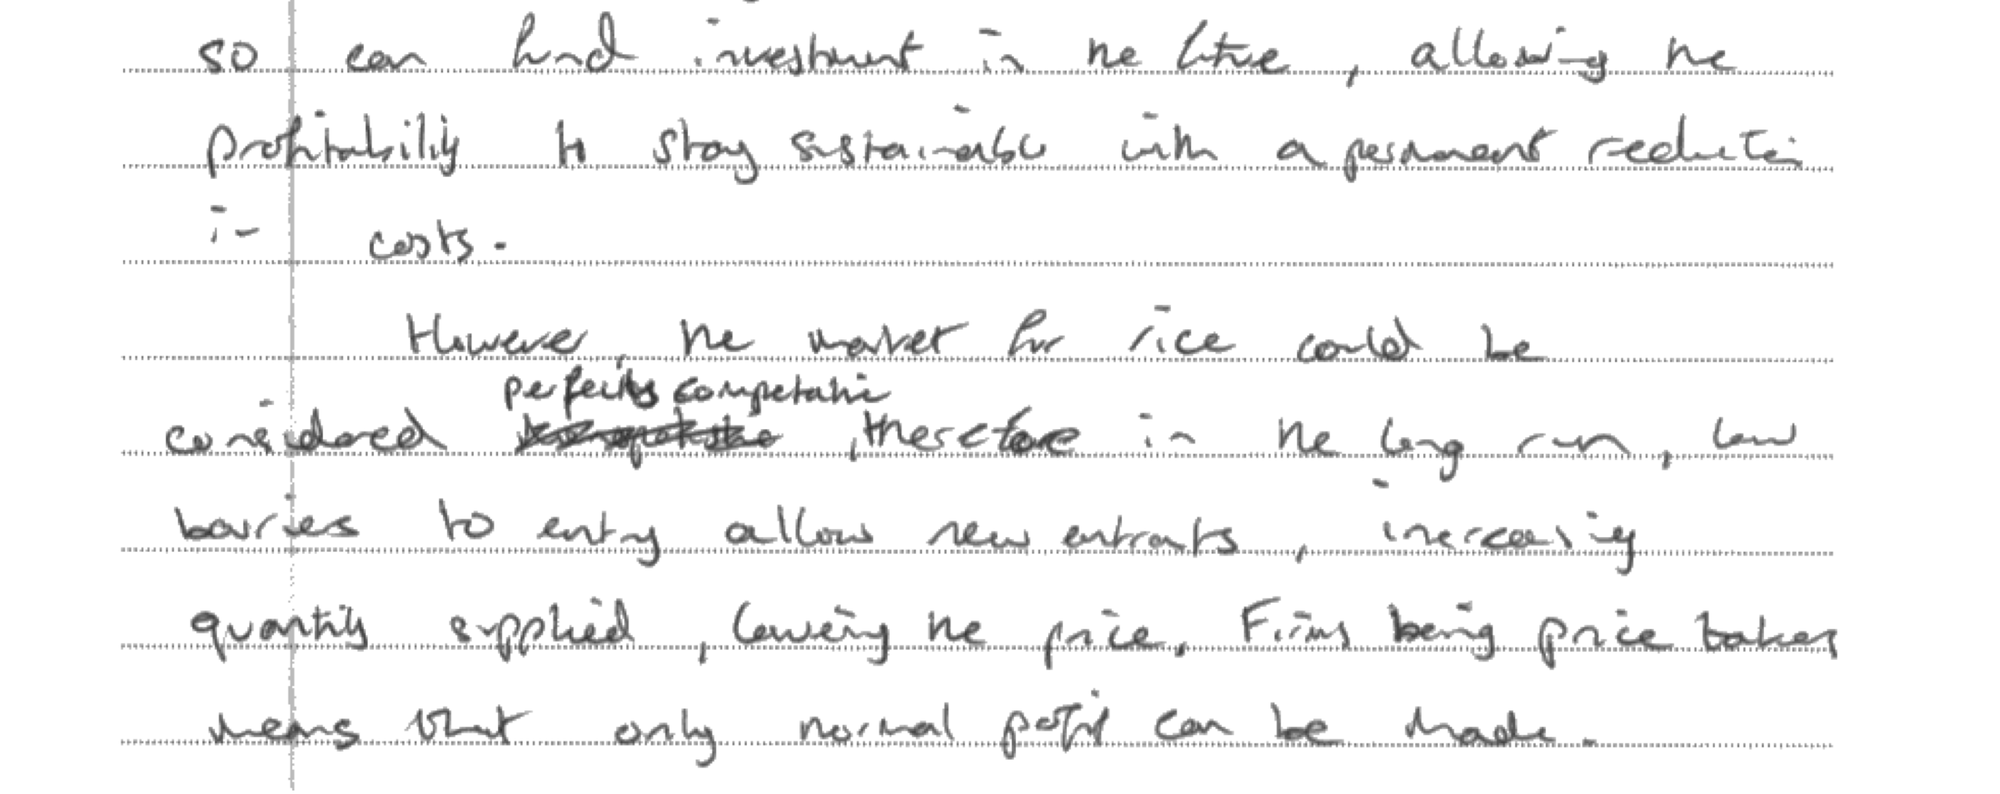 so can fund investment in the future, allowing the
profitability to stay sustainable with a permanent reduction
in costs.
However, the market for rice could be
perfectly competative
considered , therefore in the long run, low
barries to entry allows new entrants, increasing
quantity supplied, lowering the price. Firms being price takers
means that only normal profit can be made.